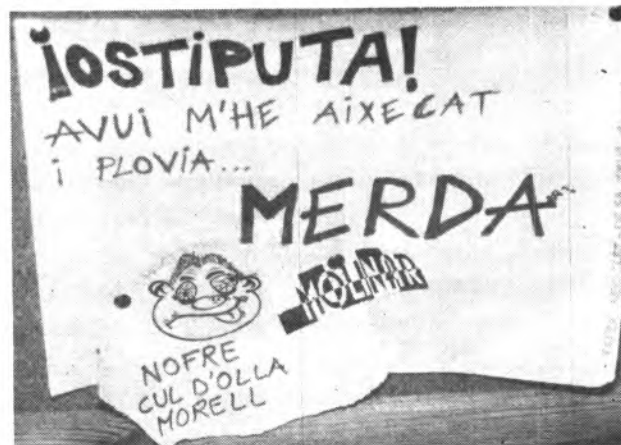 ¡OSTIPUTA!
AVUI M'HE AIXECAT
I PLOVIA...
MERDA
MOLINAR
NOFRE
CUL D'OLLA
MORELL